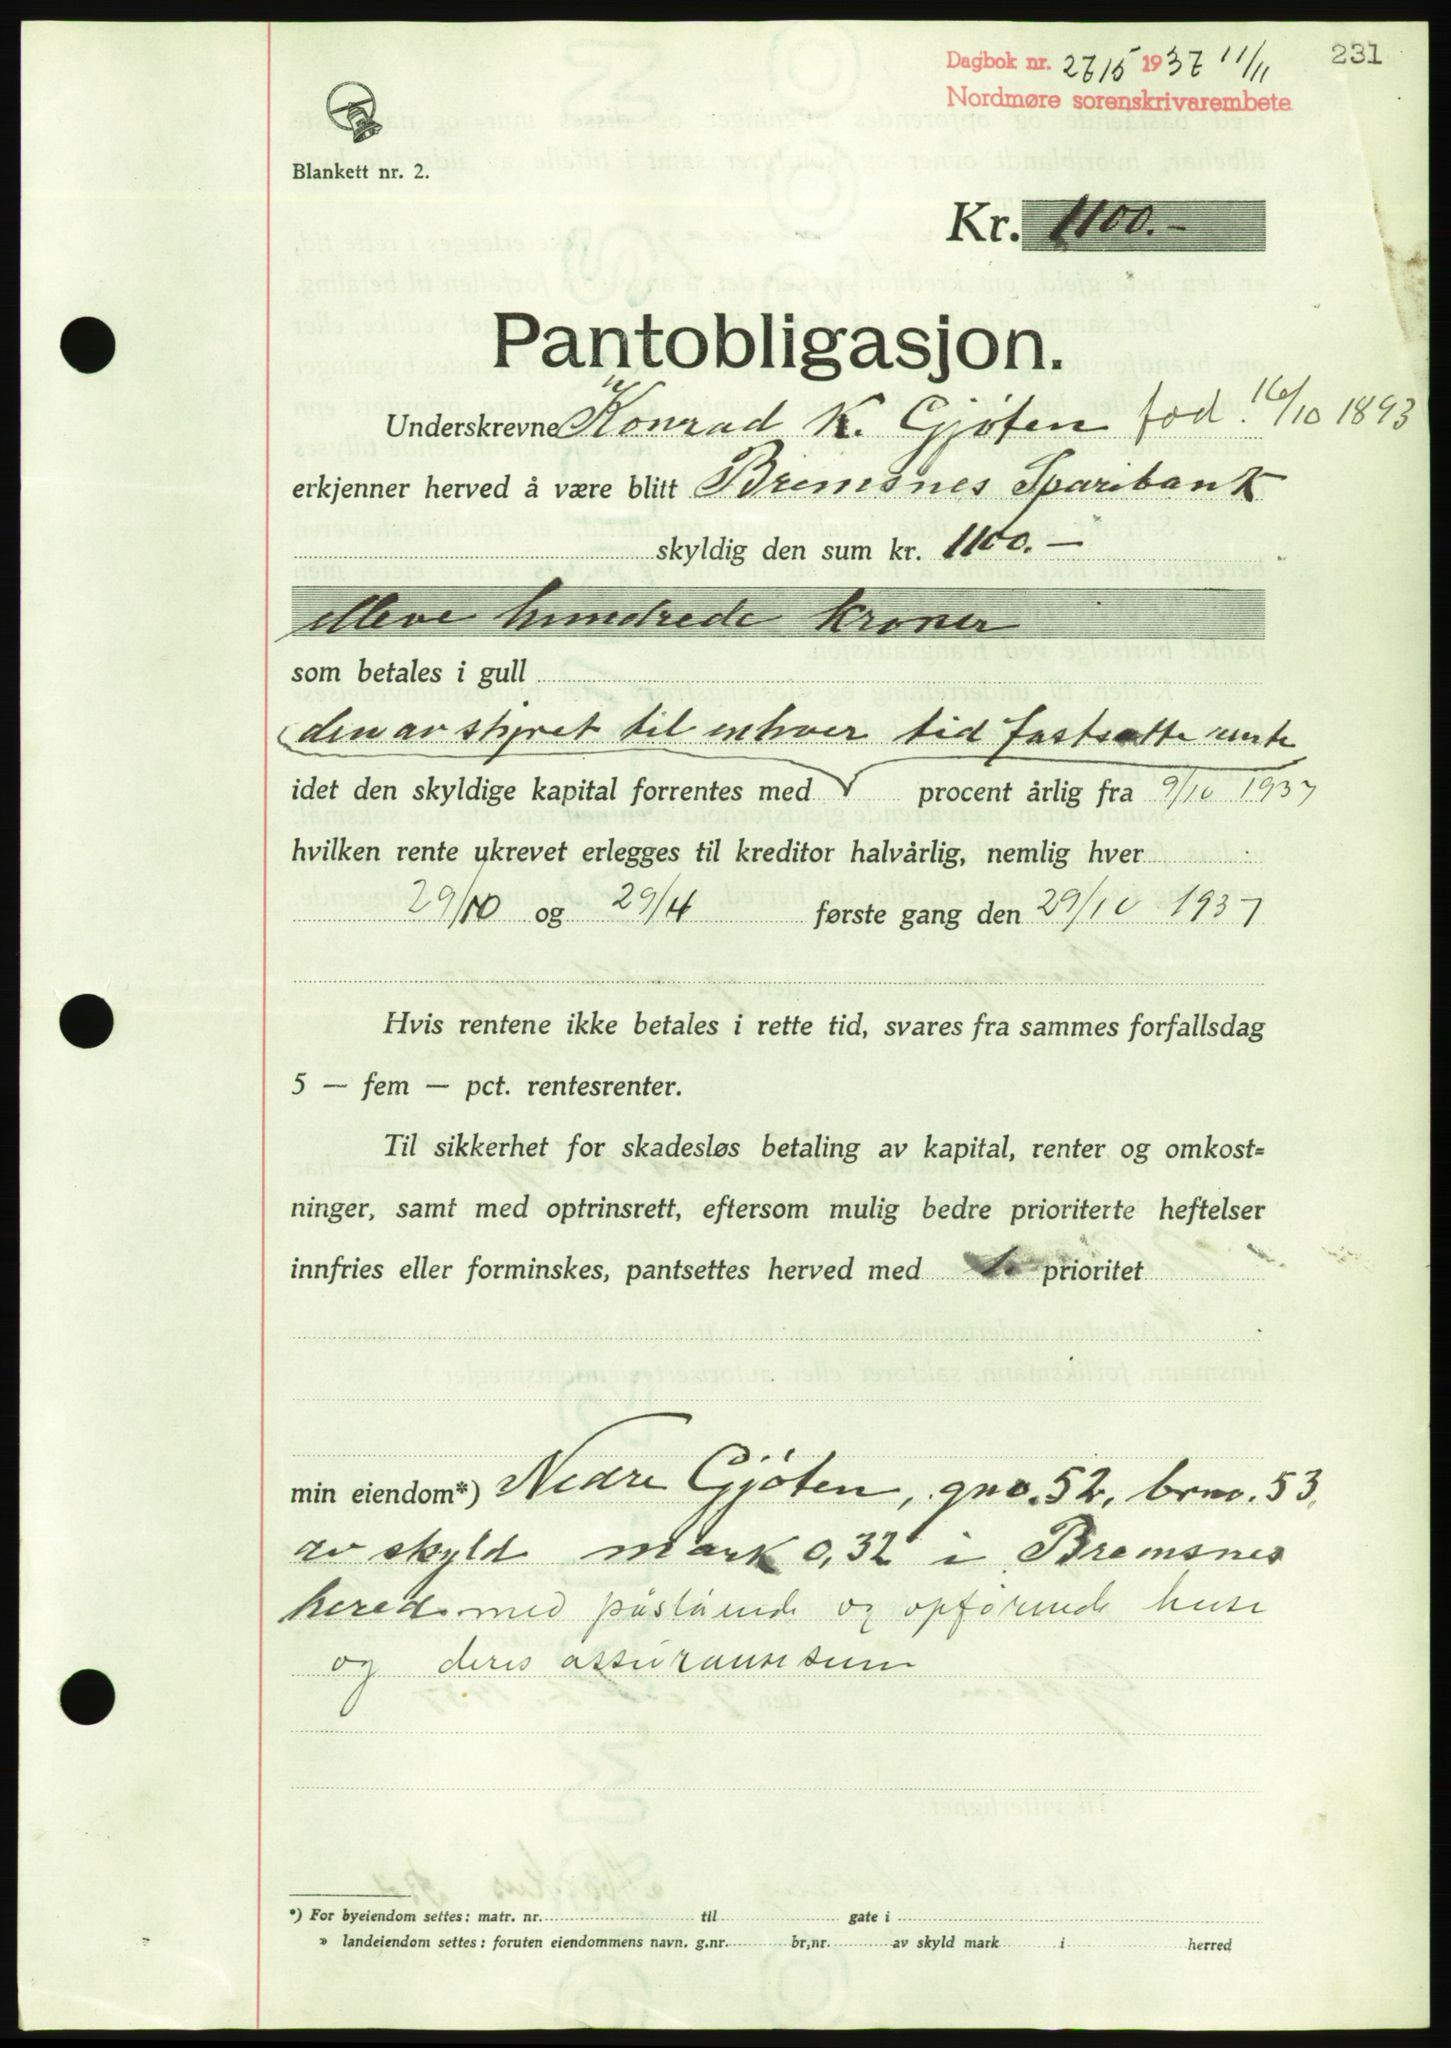 231
Dagbok nr. 2715 1937 11/11
Nordmøre sorenskrivarembete
Blankett nr. 2.
Kr. 1100.-
Pantobligasjon.
Underskrevne Konrad K. Gjøten fød. 16/10 1893
erkjenner herved å være blitt Bremsnes Sparebank
skyldig den sum kr. 1100.-
elleve hundrede kroner
som betales i gull
den av styret til enhver tid fastsatte rente
idet den skyldige kapital forrentes med procent årlig fra 9/10 1937
hvilken rente ukrevet erlegges til kreditor halvårlig, nemlig hver
29/10 og 29/4 første gang den 29/10 1937
Hvis rentene ikke betales i rette tid, svares fra sammes forfallsdag
5 — fem — pct. rentesrenter.
Til sikkerhet for skadesløs betaling av kapital, renter og omkost=
ninger, samt med optrinsrett, eftersom mulig bedre prioriterte heftelser
innfries eller forminskes, pantsettes herved med 1. prioritet
min eiendom*) Nedre Gjøten, gno. 52, brno. 53,
av skyld mark 0,32 i Bremsnes
hered med påstående og opførende huse
og deres assuransesum
*) For byeiendom settes: matr. nr. til gate i
» landeiendom settes: foruten eiendommens navn. g.nr. br,nr. av skyld mark i herred